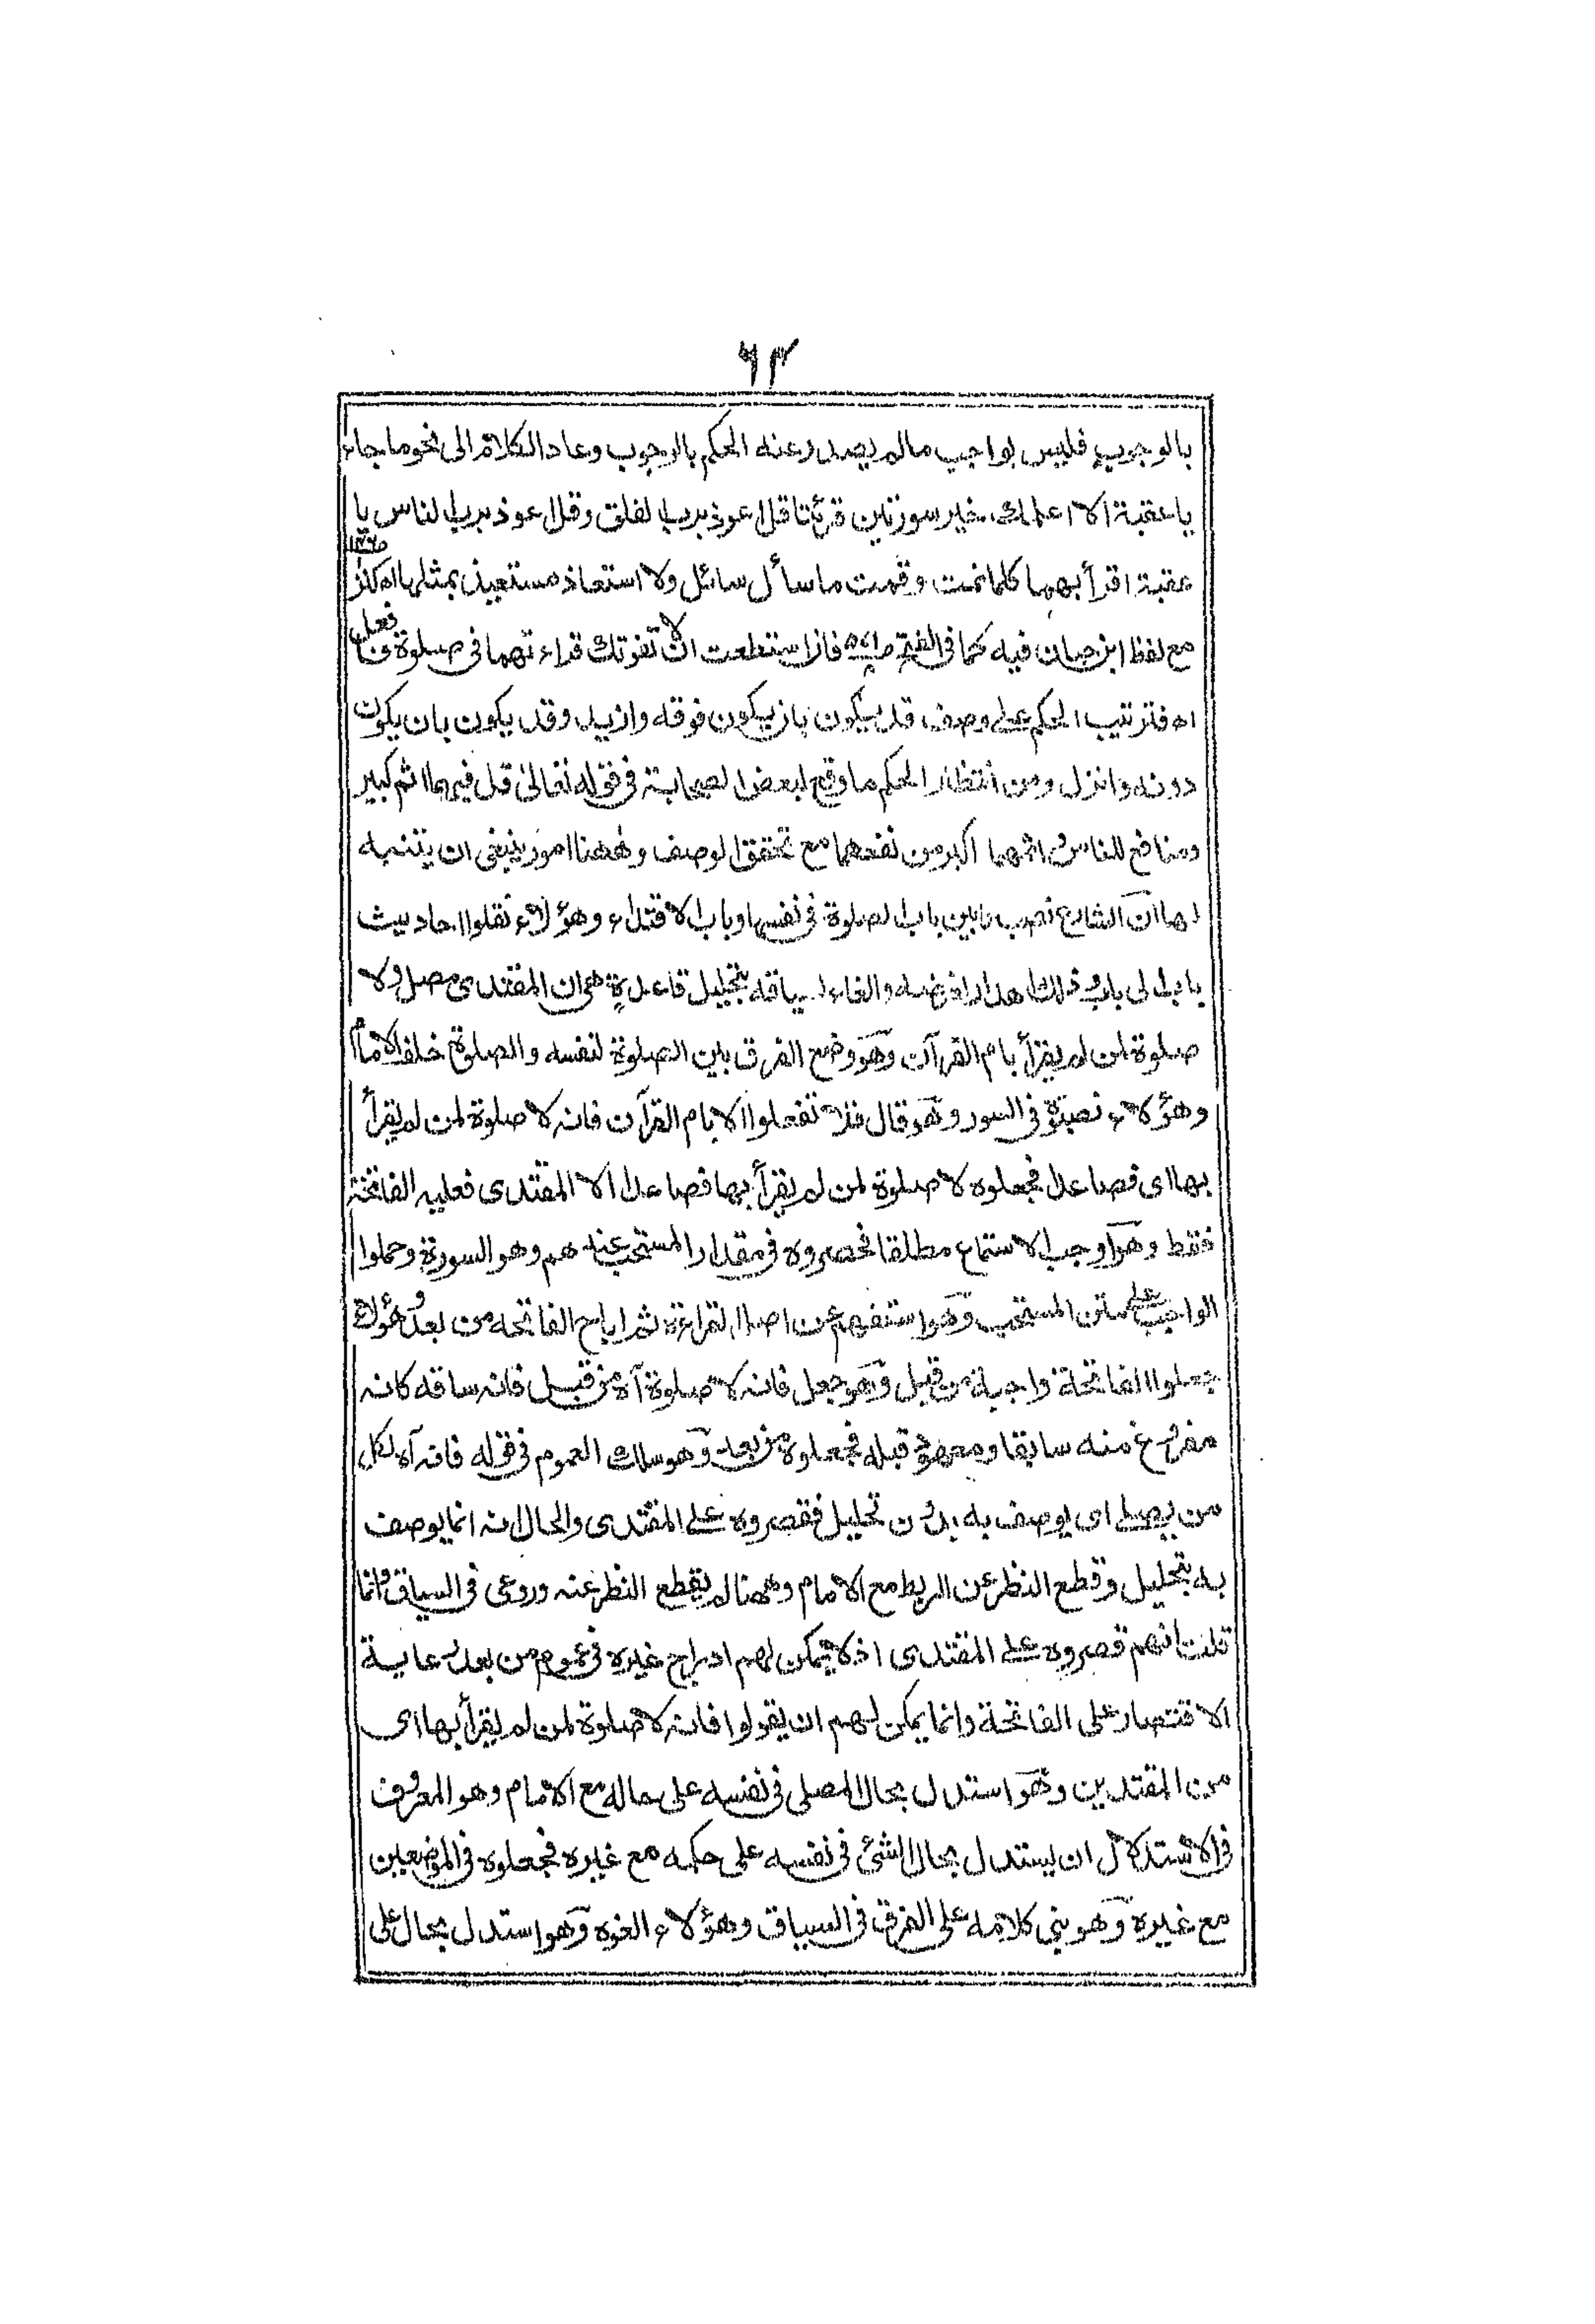 ٦٣
بالوجوب فليس بواجب مالم يصدر عنه الحكم بالوجوب وعاد الكلام الى نحو ما جاء
يا عقبة الا اعلمك خير سورتين قرئتا قل اعوذ برب الفلق وقل اعوذ برب الناس يا
عقبة اقرأ بهما كلما نمت وقمت ما سأل سائل ولا استعاذ مستعيذ بمثلهما اه كنز
مع لفظ ابن حبان فيه كما فى الفتح فان استطعت ان لا تفوتك قراءتهما فى صلوة فافعل
اه فترتيب الحكم على وصف قد يكون بان يكون فوقه وازيد وقد يكون بان يكون
دونه وانزل ومن انتظار الحكم ما وقع لبعض الصحابة فى قوله تعالى قل فيهما اثم كبير
ومنافع للناس واثمهما اكبر من نفعهما مع تحقق الوصف وههنا امور ينبغى ان يتنبه
لها ان الشارع نصب بابين باب الصلوة فى نفسها وباب الاقتداء وهؤلاء نقلوا احاديث
باب الى باب وذلك اهدار لغرضه والغاء لسياقه بتخليل قاعدة هى ان المقتدى مصل ولا
صلوة لمن لم يقرأ بام القرآن وهو وضع الفرق بين الصلوة لنفسه والصلوة خلف الامام
وهؤلاء نصبوه فى السور وهو قال فلا تفعلوا الا بام القرآن فانه لا صلوة لمن لم يقرأ
بها اى فصاعدا فجعلوه لا صلوة لمن لم يقرأ بها فصاعدا الا المقتدى فعليه الفاتحة
فقط وهو اوجب الاستماع مطلقا فحصروه فى مقدار المستحب عندهم وهو السورة وحملوا
الواجب على متن المستحب وهو استفهم عن اصل القراءة ثم اباح الفاتحه من بعد وهؤلاء
جعلوا الفاتحة واجبة من قبل وهو جعل فانه لا صلوة آه من قبل فانه ساقه كانه
مفروغ منه سابقا ومعهود قبله فجعلوه من بعد وهو سلك العموم فى قوله فانه آه لكل
من يصلى اى يوصف به بدون تحليل فقصروه على المقتدى والحال انه انما يوصف
به بتحليل وقطع النظر عن الربط مع الامام وههنا لم يقطع النظر عنه وروعى فى السياق وانما
قلت انهم قصروه على المقتدى اذ لا يمكن لهم ادراج غيره فى عموم من بعد رعاية
الاقتصار على الفاتحة وانما يمكن لهم ان يقولوا فانه لا صلوة لمن لم يقرأ بها اى
من المقتدين وهو استدل بحال المصلى فى نفسه على حاله مع الامام وهو المعروف
فى الاستدلال ان يستدل بحال الشئ فى نفسه على حكمه مع غيره فجعلوه فى الموضعين
مع غيره وهو بنى كلامه على الفرق فى السياق وهؤلاء الغوه وهو استدل بحال على